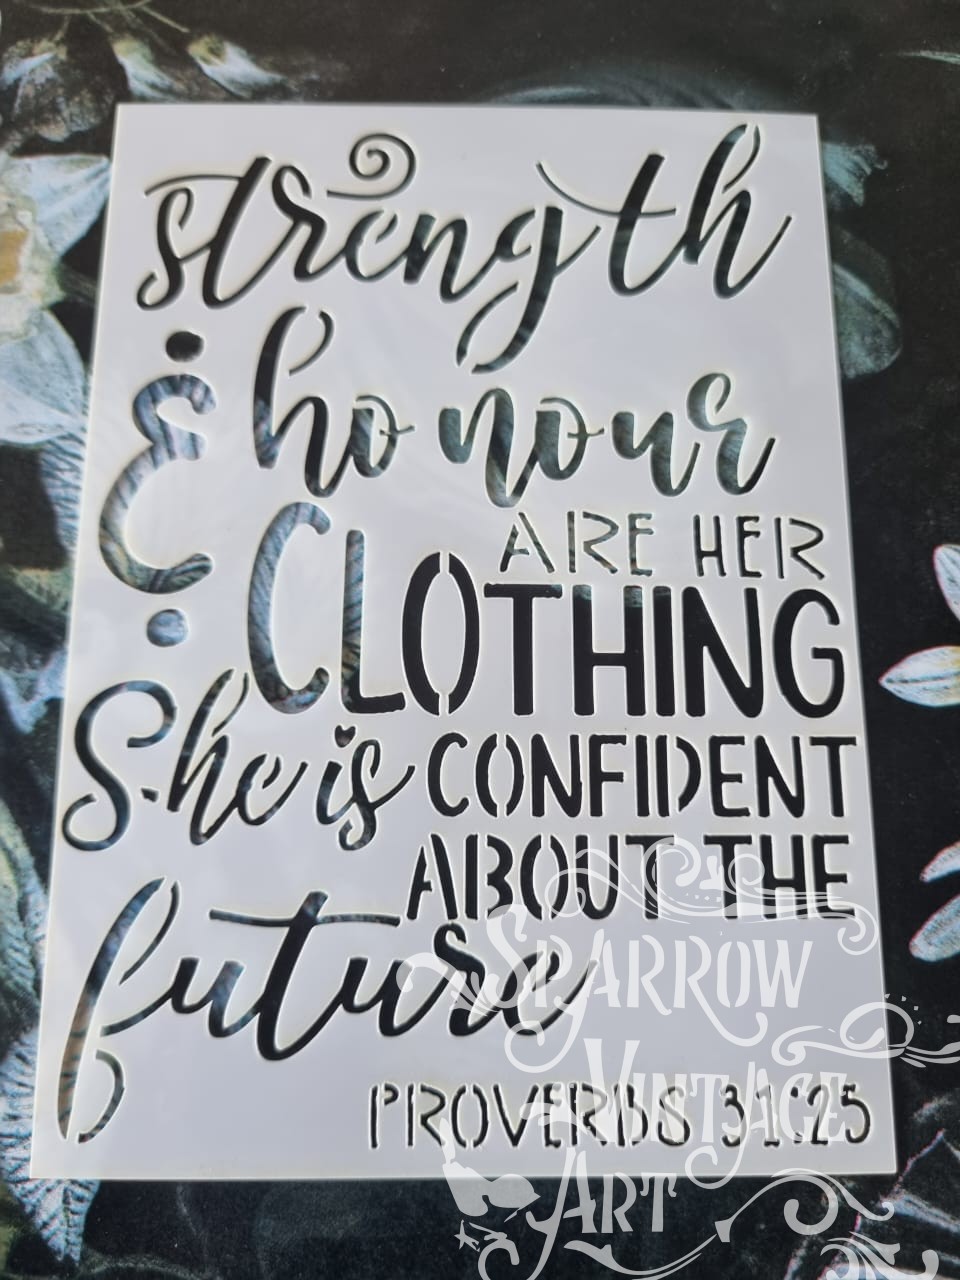 strength
& honour
ARE HER
CLOTHING
She is CONFIDENT
ABOUT THE
future
PROVERBS 31:25
SPARROW
VINTAGE
ART